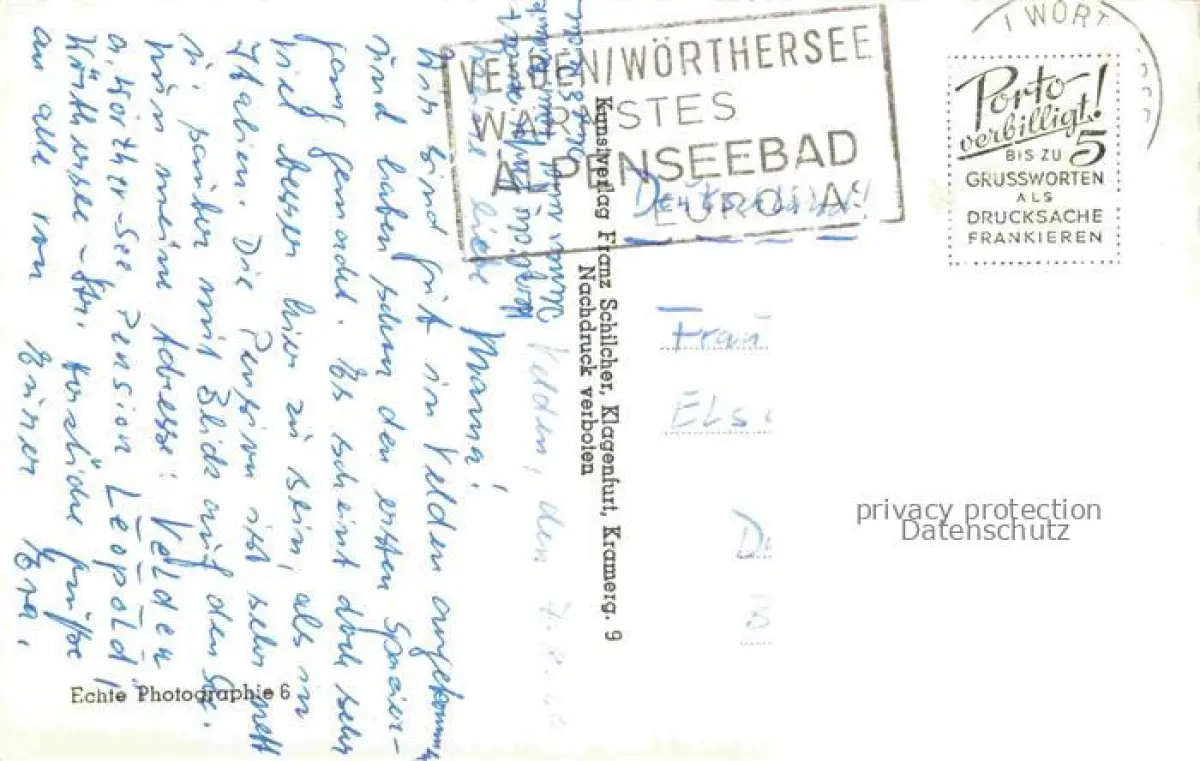 VELDEN/WÖRTHERSEE
WÄRMSTES
ALPENSEEBAD
EUROPAS
WÖRT
Porto
verbilligt!
BIS ZU 5
GRUSSWORTEN
ALS
DRUCKSACHE
FRANKIEREN
Velden, den
Meine liebe Mama!
Wir sind gut in Velden angekommen
und haben schon den ersten Spazier-
gang gemacht. Es scheint doch sehr
viel besser hier zu sein, als in
Italien. Die Pension ist sehr nett
u. sauber mit Blick auf den See.
Nun meine Adresse: Velden
a. Wörther-See, Pension Leopold,
Wörthersee-Str. Herzliche Grüße
an alle von Eurer
Kunstverlag Franz Schilcher, Klagenfurt, Kramerg. 9
Nachdruck verboten
Deutschland!
Frau
Els
D
B
privacy protection
Datenschutz
Echte Photographie 6